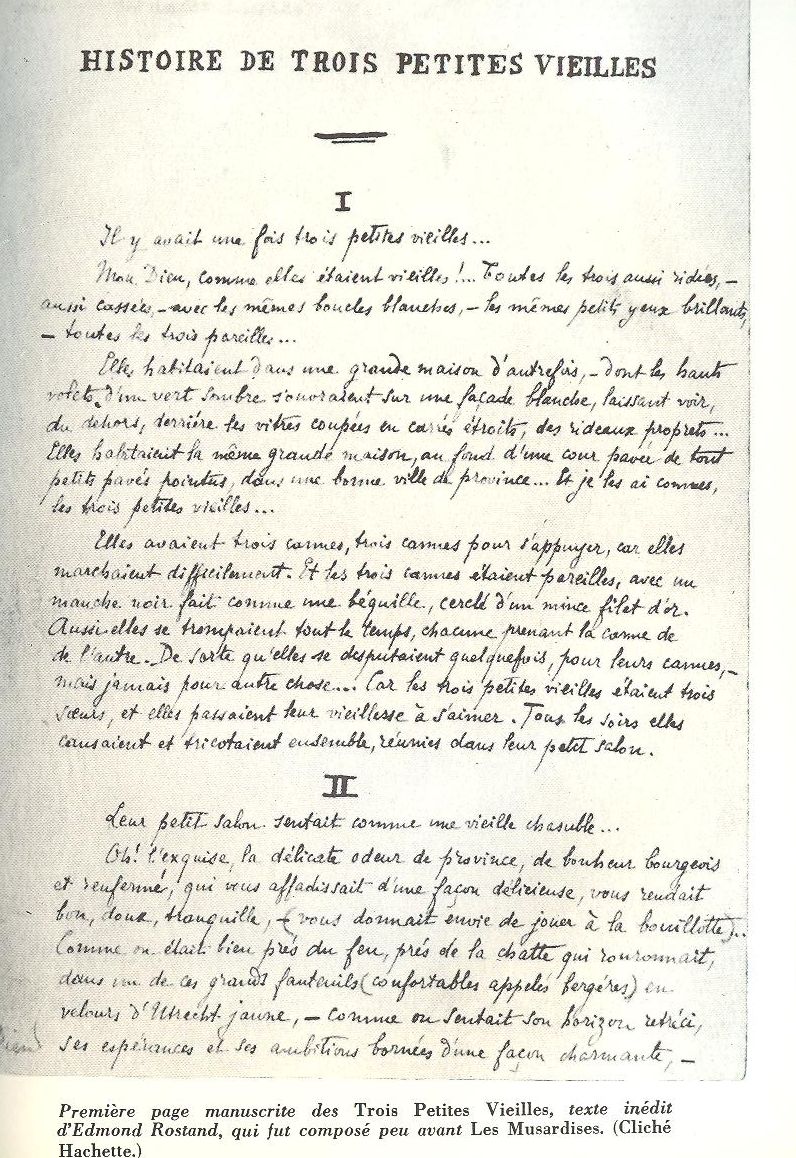 HISTOIRE DE TROIS PETITES VIEILLES
I
Il y avait une fois trois petites vieilles...
Mon Dieu, comme elles étaient vieilles!... Toutes les trois aussi ridées, –
aussi cassées, – avec les mêmes boucles blanches, – les mêmes petits yeux brillants,
– toutes les trois pareilles...
Elles habitaient dans une grande maison d'autrefois, – dont les hauts
volets d'un vert sombre s'ouvraient sur une façade blanche, laissant voir,
du dehors, derrière les vitres coupées en carrés étroits, des rideaux proprets...
Elles habitaient la même grande maison, au fond d'une cour pavée de tout
petits pavés pointus, dans une bonne ville de province... Et je les ai connues,
les trois petites vieilles...
Elles avaient trois cannes, trois cannes pour s'appuyer, car elles
marchaient difficilement. Et les trois cannes étaient pareilles, avec un
manche noir fait comme une béquille, cerclé d'un mince filet d'or.
Aussi elles se trompaient tout le temps, chacune prenant la canne de
de l'autre. De sorte qu'elles se disputaient quelquefois, pour leurs cannes, –
mais jamais pour autre chose... Car les trois petites vieilles étaient trois
sœurs, et elles passaient leur vieillesse à s'aimer. Tous les soirs elles
causaient et tricotaient ensemble, réunies dans leur petit salon.
II
Leur petit salon sentait comme une vieille chasuble...
Oh! l'exquise, la délicate odeur de province, de bonheur bourgeois
et renfermé, qui vous affadissait d'une façon délicieuse, vous rendait
bon, doux, tranquille, – (vous donnait envie de jouer à la bouillotte)..
Comme on était bien près du feu, près de la chatte qui ronronnait,
dans un de ces grands fauteuils (confortables appelés bergères) en
velours d'Utrecht jaune, – comme on sentait son horizon rétréci,
ses espérances et ses ambitions bornées d'une façon charmante, –
Première page manuscrite des Trois Petites Vieilles, texte inédit
d'Edmond Rostand, qui fut composé peu avant Les Musardises. (Cliché
Hachette.)